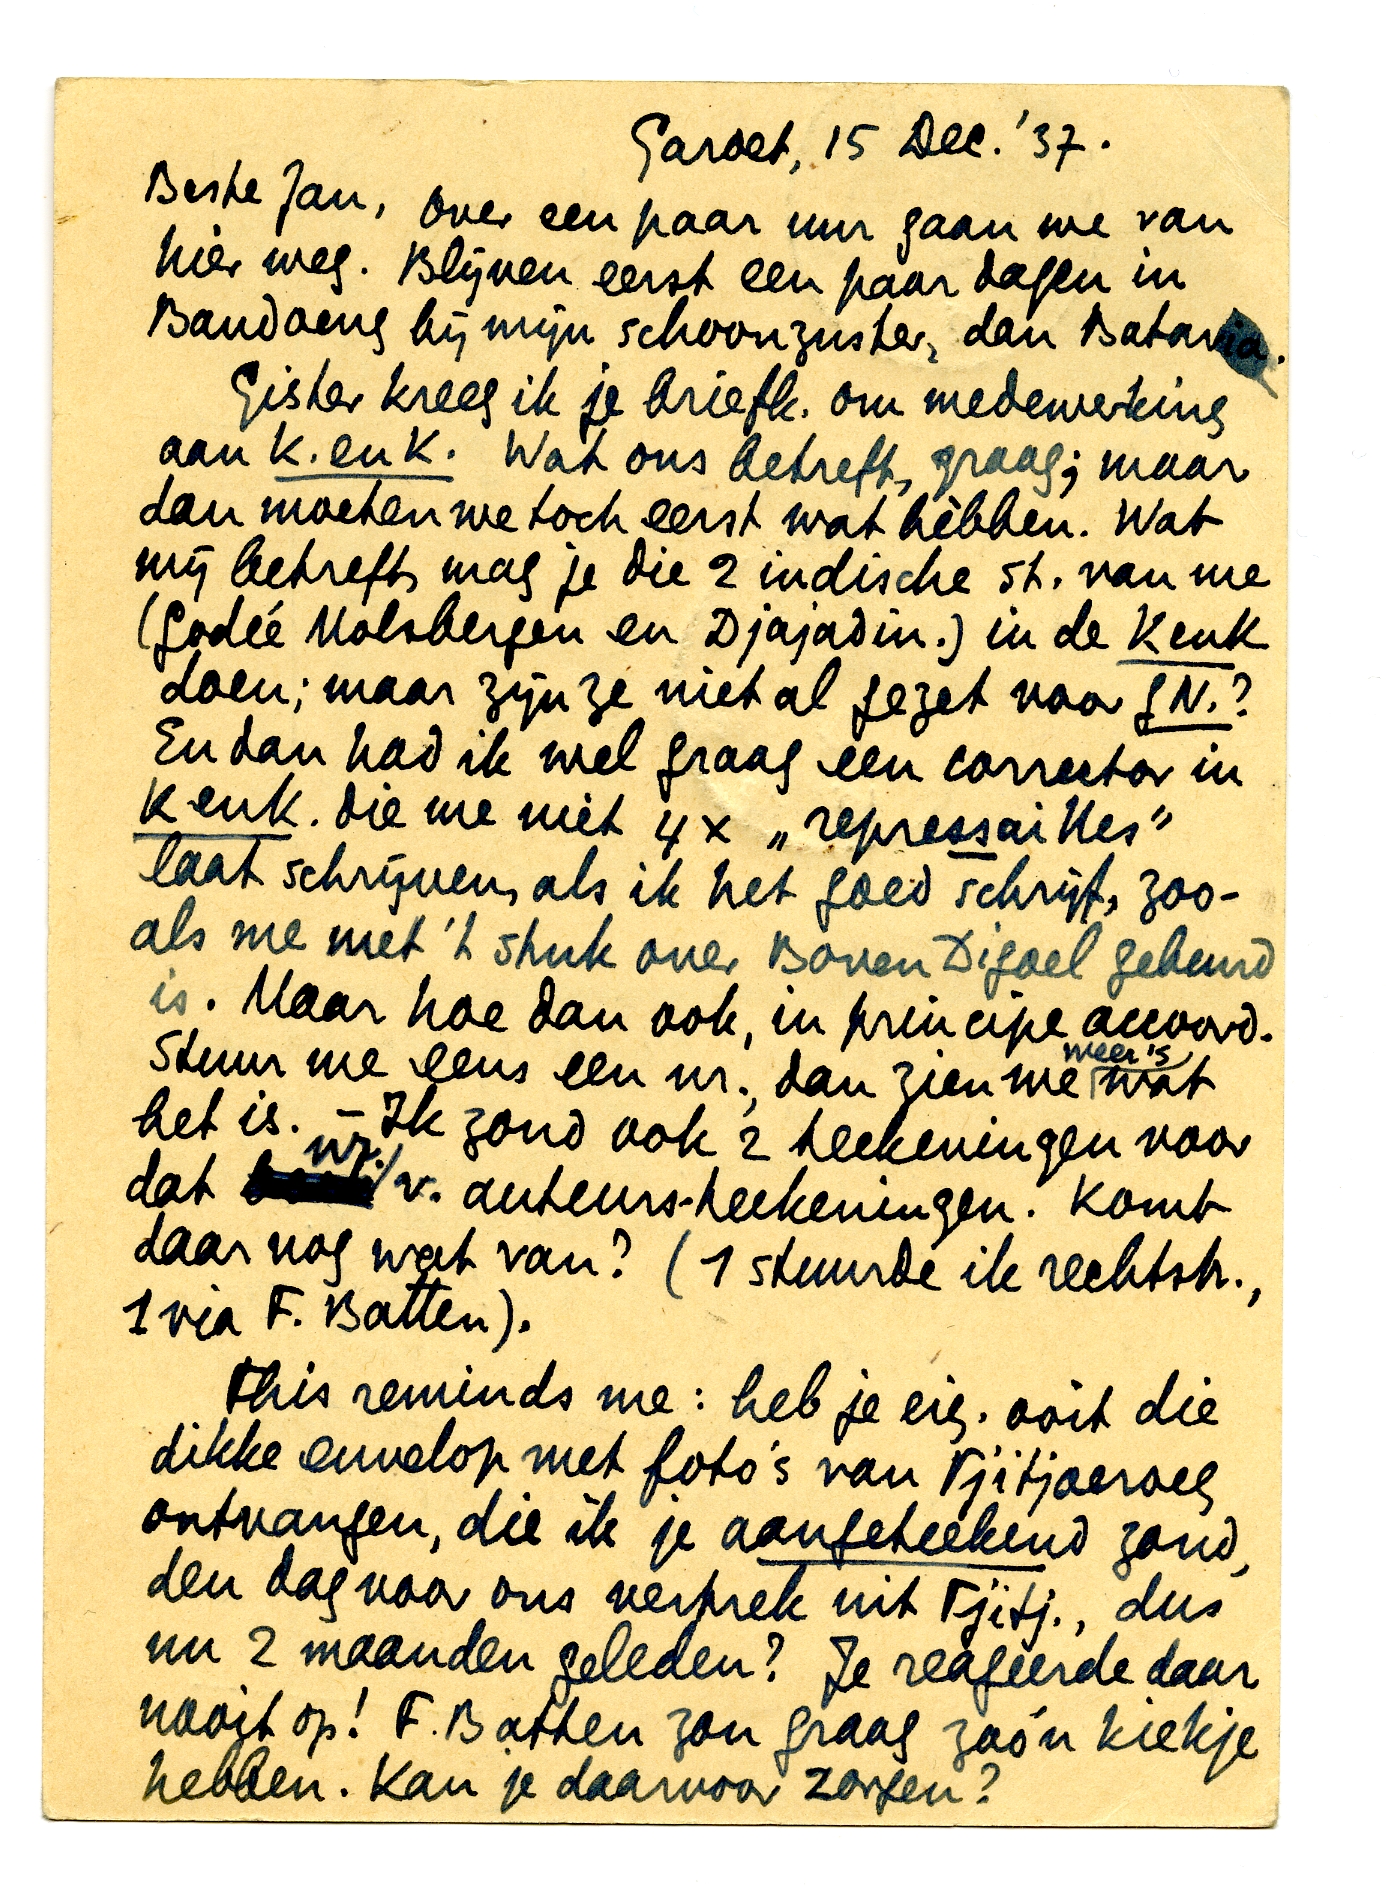 Garoet, 15 Dec. '37.
Beste Jan, over een paar uur gaan we van
hier weg. Blijven eerst een paar dagen in
Bandoeng bij mijn schoonzuster, dan Batavia.
Gister kreeg ik je briefk. om medewerking
aan K. en K. Wat ons betreft, graag; maar
dan moeten we toch eerst wat hèbben. Wat
mij betreft, mag je die 2 indische st. van me
(Godée Molsbergen en Djajadin.) in de K en K
doen; maar zijn ze niet al gezet voor GN.?
En dan had ik wel graag een corrector in
K en K. die me niet 4 x „repressailles”
laat schrijven, als ik het goed schrijf, zoo-
als me met 't stuk over Boven Digoel gebeurd
is. Maar hoe dan ook, in principe accoord.
Stuur me eens een nr., dan zien we meer 's wat
het is. – Ik zond ook 2 teekeningen voor
dat nr. v. auteurs-teekeningen. Komt
daar nog wat van? (1 stuurde ik rechtstr.,
1 via F. Batten).
This reminds me: heb je eig. ooit die
dikke envelop met foto's van Tjitjoeroeg
ontvangen, die ik je aangeteekend zond,
den dag voor ons vertrek uit Tjitj., dus
nu 2 maanden geleden? Je reageerde daar
nooit op! F. Batten zou graag zoo'n kiekje
hebben. Kan je daarvoor zorgen?